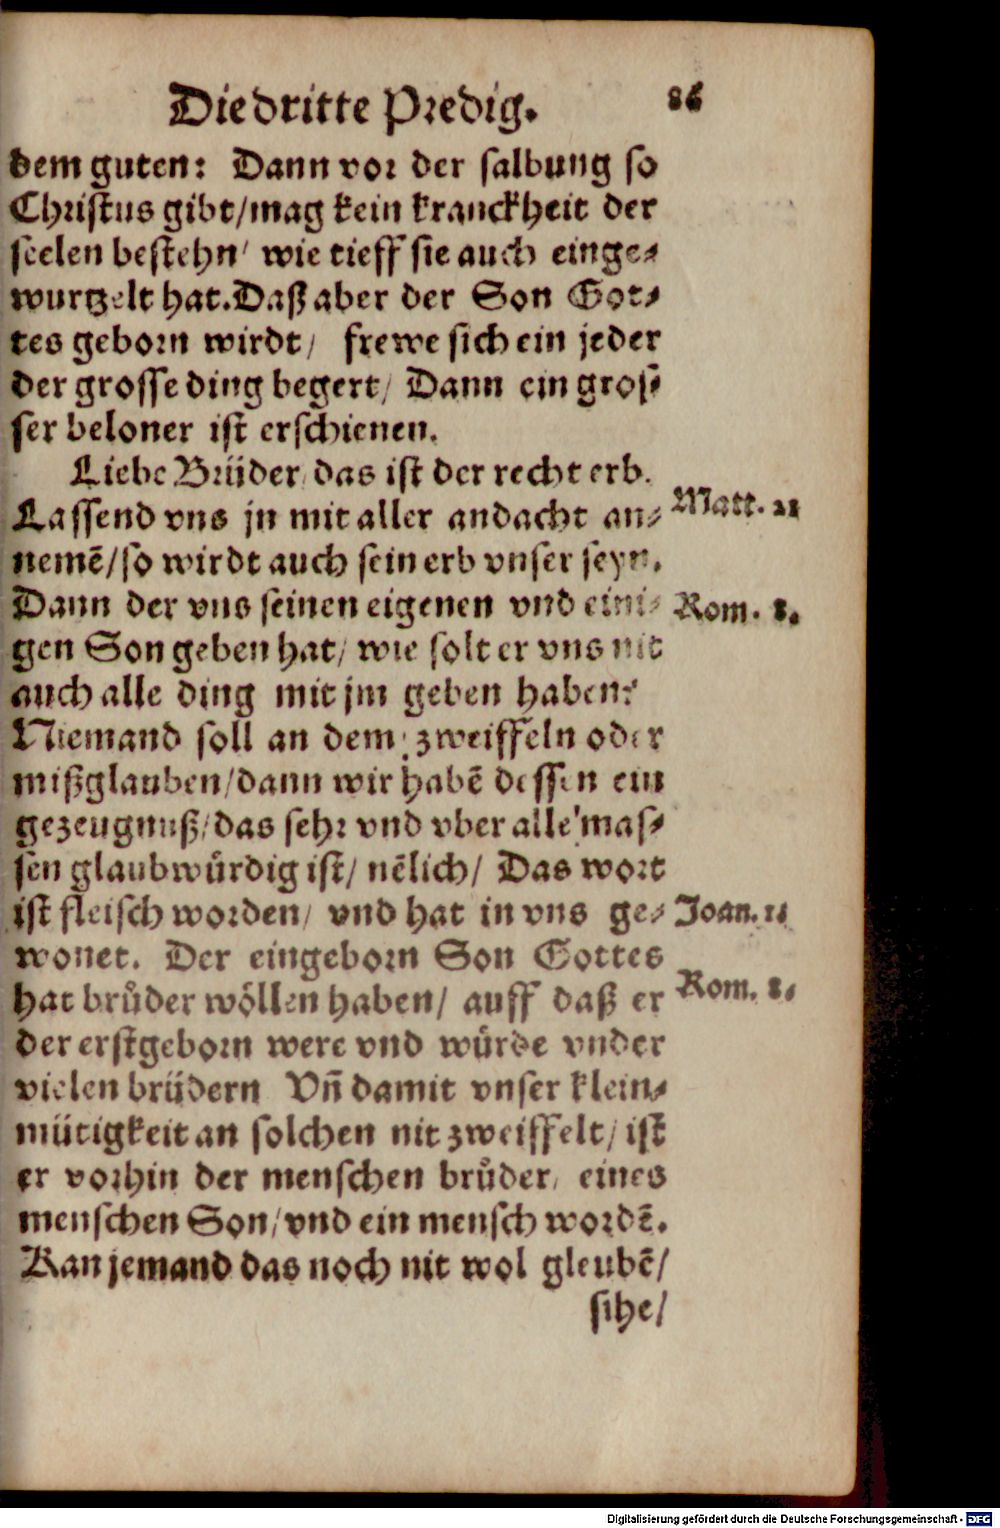 Die dritte Predig. 86
dem guten: Dann vor der salbung so
Christus gibt/mag kein kranckheit der
seelen bestehn/ wie tieff sie auch einge-
wurtzelt hat. Daß aber der Son Got-
tes geborn wirdt/ frewe sich ein jeder
der grosse ding begert/ Dann ein gros-
ser beloner ist erschienen.
Liebe Brüder/ das ist der recht erb.
Lassend vns jn mit aller andacht an- Matt. 21
nemẽ/so wirdt auch sein erb vnser seyn.
Dann der vns seinen eigenen vnd eini- Rom. 8.
gen Son geben hat/ wie solt er vns nit
auch alle ding mit jm geben haben?
Niemand soll an dem zweiffeln oder
mißglauben/dann wir habẽ dessen ein
gezeugnuß/das sehr vnd vber alle mas-
sen glaubwuͤrdig ist/ nẽlich/ Das wort
ist fleisch worden/ vnd hat in vns ge- Joan. 1.
wonet. Der eingeborn Son Gottes
hat bruͤder woͤllen haben/ auff daß er Rom. 8.
der erstgeborn were vnd wuͤrde vnder
vielen brüdern Vñ damit vnser klein-
mütigkeit an solchen nit zweiffelt/ ist
er vorhin der menschen bruͤder/ eines
menschen Son/vnd ein mensch wordẽ.
Kan jemand das noch nit wol gleubẽ/
sihe/
Digitalisierung gefördert durch die Deutsche Forschungsgemeinschaft - DFG